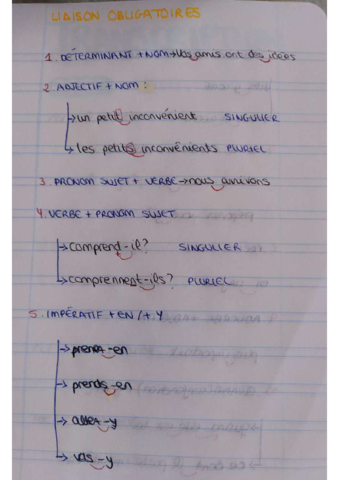 LIAISON OBLIGATOIRES
1. DÉTERMINANT + NOM → Vos amis ont des idées
2. ADJECTIF + NOM :
→ un petit inconvénient SINGULIER
→ les petits inconvénients PLURIEL
3. PRONOM SUJET + VERBE → nous arrivons
4. VERBE + PRONOM SUJET
→ comprend-il? SINGULIER
→ comprennent-ils? PLURIEL
5. IMPÉRATIF + EN / + Y
→ prenez-en
→ prends-en
→ allez-y
→ vas-y